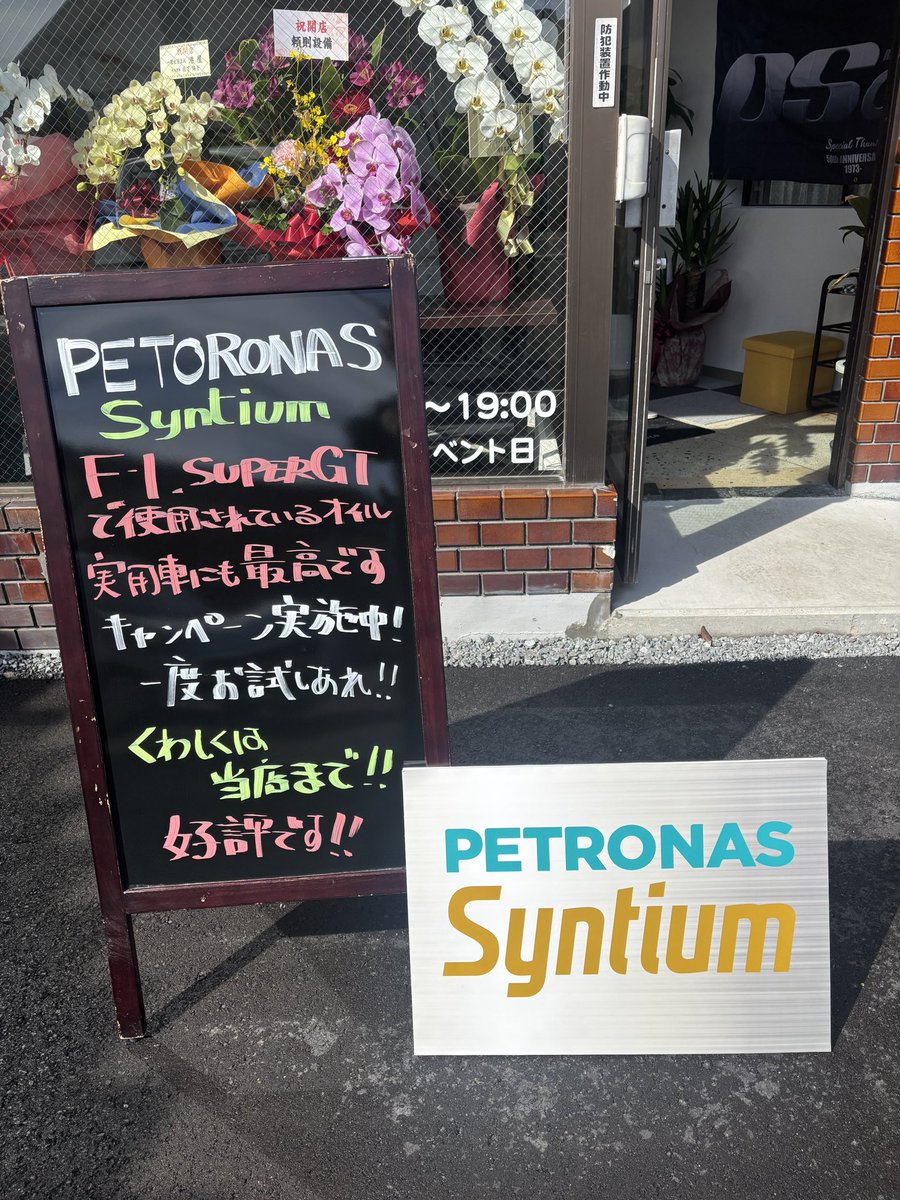 祝開店
頼則設備
防犯装置作動中
Special Thank
50th ANNIVERSA
1973-
PETORONAS
Syntium
F-1、SUPERGT
で使用されているオイル
実用車にも最高です
キャンペーン実施中!
一度お試しあれ!!
くわしくは
当店まで!!
好評です!!
～19:00
ベント日
PETRONAS
Syntium